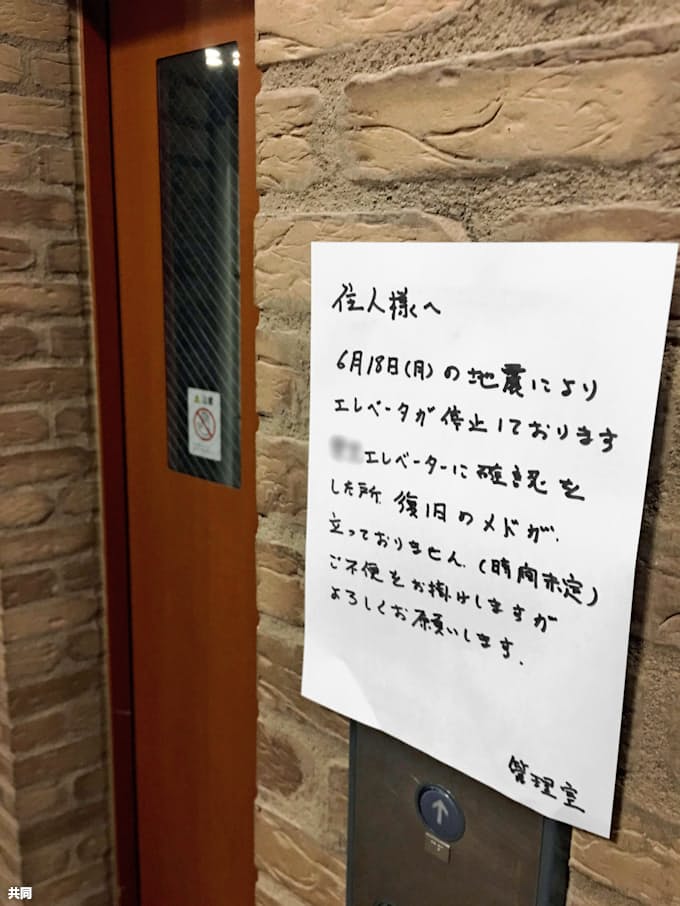 住人様へ
6月18日(月)の地震により
エレベータが停止しております
エレベーターに確認を
した所 復旧のメドが、
立っておりません.(時間未定)
ご不便をお掛けしますが
よろしくお願いします.
管理室
共同